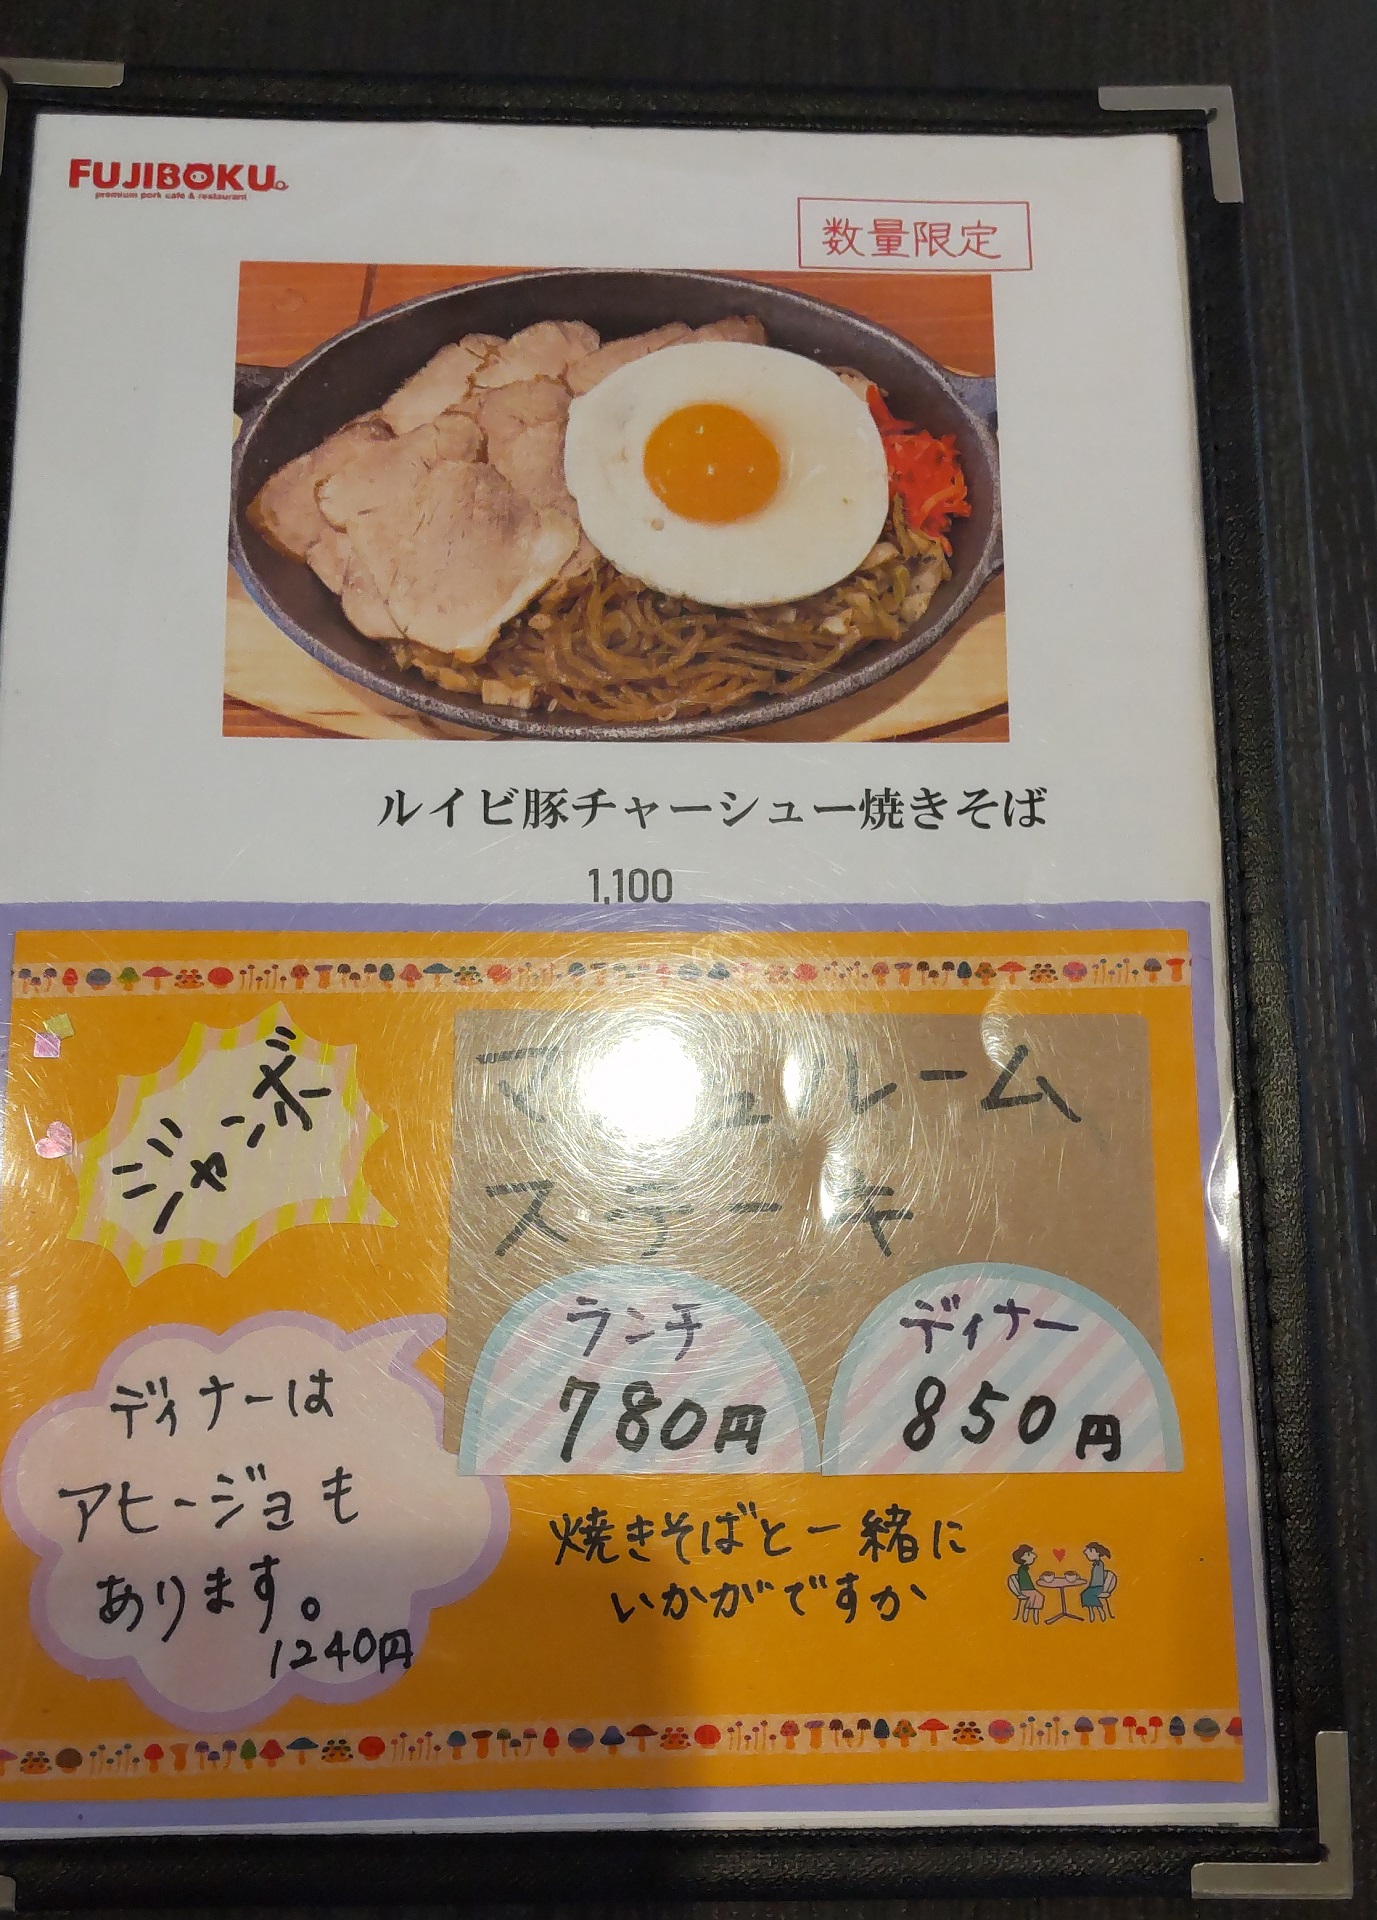 FUJIBOKU
premium pork cafe & restaurant
数量限定
ルイビ豚チャーシュー焼きそば
1,100
ジャンボ
マッシュルーム
ステーキ
ランチ
780円
ディナー
850円
ディナーは
アヒージョも
あります。
1240円
焼きそばと一緒に
いかがですか